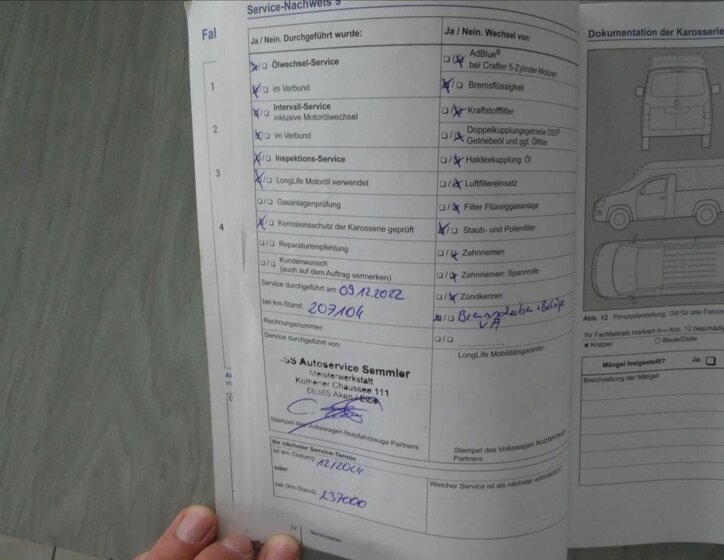 Service-Nachweis 9
Fal
Ja / Nein. Durchgeführt wurde:
Ölwechsel-Service
im Verbund
Intervall-Service
inklusive Motorölwechsel
im Verbund
Inspektions-Service
LongLife Motoröl verwendet
Gasanlagenprüfung
Korrosionsschutz der Karosserie geprüft
Reparaturempfehlung
Kundenwunsch
(auch auf dem Auftrag vermerken)
Service durchgeführt am: 09.12.2022
bei km-Stand: 207104
Rechnungsnummer:
Service durchgeführt von:
SS Autoservice Semmler
Meisterwerkstatt
Köthener Chaussee 111
06385 Aken / Elbe
Stempel des Volkswagen Nutzfahrzeuge Partners
Ihr nächster Service-Termin
ist am (Datum): 12/2004
oder
bei (km-Stand): 237000
22 Serviceplan
1
2
3
4
Ja / Nein. Wechsel von:
AdBlue®
bei Crafter 5-Zylinder-Motoren
Bremsflüssigkeit
Kraftstofffilter
Doppelkupplungsgetriebe DSG®
Getriebeöl und ggf. Ölfilter
Haldexkupplung: Öl
Luftfiltereinsatz
Filter Flüssiggasanlage
Staub- und Pollenfilter
Zahnriemen
Zahnriemen: Spannrolle
Zündkerzen
Bremsscheiben + Beläge
VA
LongLife Mobilitätsgarantie
Stempel des Volkswagen Nutzfahrzeuge
Partners
Welcher Service ist als nächster erforderlich?
Dokumentation der Karosserie
Abb. 12 Prinzipdarstellung. Gilt für alle Fahrze
Ihr Fachbetrieb markiert in Abb. 12 beschädig
x Kratzer
Beule/Delle
Mängel festgestellt?
Ja:
Beschreibung der Mängel